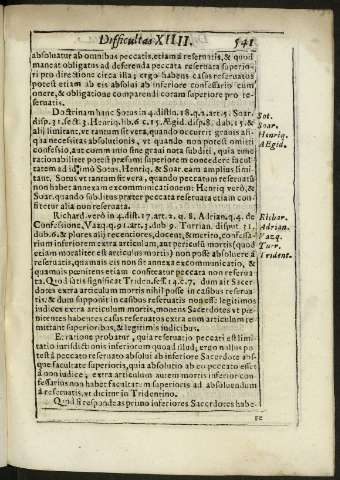 Difficultas XIIII. 541
absoluatur ab omnibus peccatis, etiam à reseruatis, & quod
maneat obligatus ad deferenda peccata reseruata superio-
ri pro directione circa illa; ergo habens casus reseruatos
potest etiam ab eis absolui ab inferiore confessario cum
onere, & obligatione comparendi coram superiore pro re-
seruatis.
Doctrinam hanc Sotus in 4. dist. 18. q. 2. art. 5. Soar.
disp. 31. sect. 3. Henriq. lib. 6. c. 15. Ægid. disp. 8. dub. 15. &
alij limitant, vt tantum sit vera, quando occurrit grauis ali-
qua necessitas absolutionis, vt quando non potest omitti
confessio, aut communio sine graui nota subditi, quia tunc
rationabiliter potest præsumi superiorem concedere facul-
tatem ad id; imò Sotus, Henriq. & Soar. eam amplius limi-
tant, Sotus vt tantum sit vera, quando peccatum reseruatū
non habet annexam excommunicationem: Henriq. verò, &
Soar. quando subditus præter peccata reseruata etiam con-
fitetur alia non reseruata.
Richard. verò in 4. dist. 17. art. 2. q. 8. Adrian. q. 4. de
Confessione, Vazq. q. 91. art. 3. dub 9. Turrian. disput 31.
dub. 6. & plures alij recentiores, docent, & meritò, confessa-
rium inferiorem extra articulum, aut periculū mortis (quod
etiam moraliter est articulus mortis) non posse absoluere à
reseruatis, quamuis eis non sit annexa excommunicatio, &
quamuis pœnitens etiam confiteatur peccata non reserua-
ta. Quod satis significat Triden. sess. 14. c. 7, dum ait Sacer-
dotes extra articulum mortis nihil posse in casibus reserua-
tis, & dum supponit in casibus reseruatis non esse legitimos
iudices extra articulum mortis, monens Sacerdotes vt pœ-
nitentes habentes casus reseruatos extra eum articulum re-
mittant superioribus, & legitimis iudicibus.
Et ratione probatur, quia reseruatio peccati est limita-
tio iurisdictionis inferiorum quoad illud; ergo nullus po-
test à peccato reseruato absolui ab inferiore Sacerdote abs-
que facultate superioris, quia absolutio ab eo peccato esset
à non iudice; extra articulum autem mortis inferior con-
fessarius non habet facultatem superioris ad absoluendum
à reseruatis, vt dicitur in Tridentino.
Quod si respondeas primo inferiores Sacerdotes habe-
re
Sot.
Soar.
Henriq.
AEgid.
Richar.
Adrian.
Vazq.
Turr.
Trident.